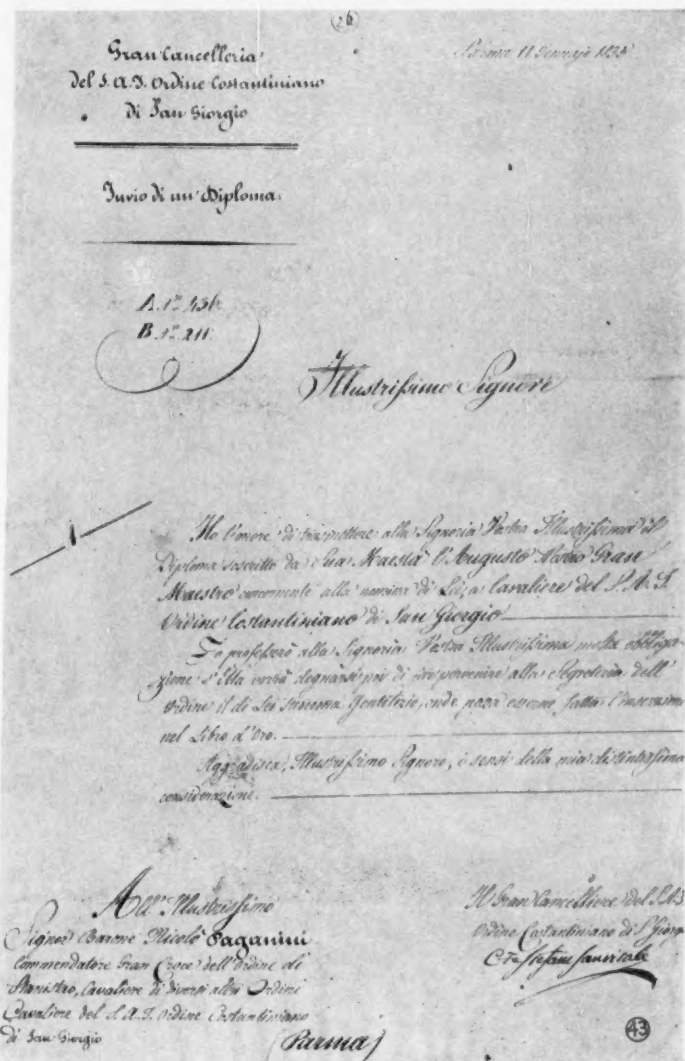 (26)
Gran Cancelleria
del S. A. I. Ordine Costantiniano
di San Giorgio
Parma 11 Gennajo
Invio di un Diploma.
A. N.º
B. N.º 211
Illustrissimo Signore
1
Ho l'onore di trasmettere alla Signoria Vostra Illustrissima il
Diploma da Sua Maestà l'Augusta Gran
Maestro concernente alla nomina di Lei, a Cavaliere del S. A. I.
Ordine Costantiniano di San Giorgio
Io professerò alla Signoria Vostra Illustrissima molta obbliga-
zione s'Ella vorrà degnarsi poi di far pervenire alla Segreteria dell'
Ordine il di Lei Gentilizio, onde possa esserne fatta l'inserzione
nel Libro d'oro.
Aggradisca, Illustrissimo Signore, i sensi della mia distintissima
considerazione.
All'Illustrissimo
Signor Barone Nicolò Paganini
Commendatore Gran Croce dell'Ordine di
Cavaliere di diversi altri Ordini
Cavaliere del S. A. I. Ordine Costantiniano
di San Giorgio
(Parma)
Il Gran Cancelliere del S. A. I.
Ordine Costantiniano di S. Giorgio
Stefano Sanvitale
43